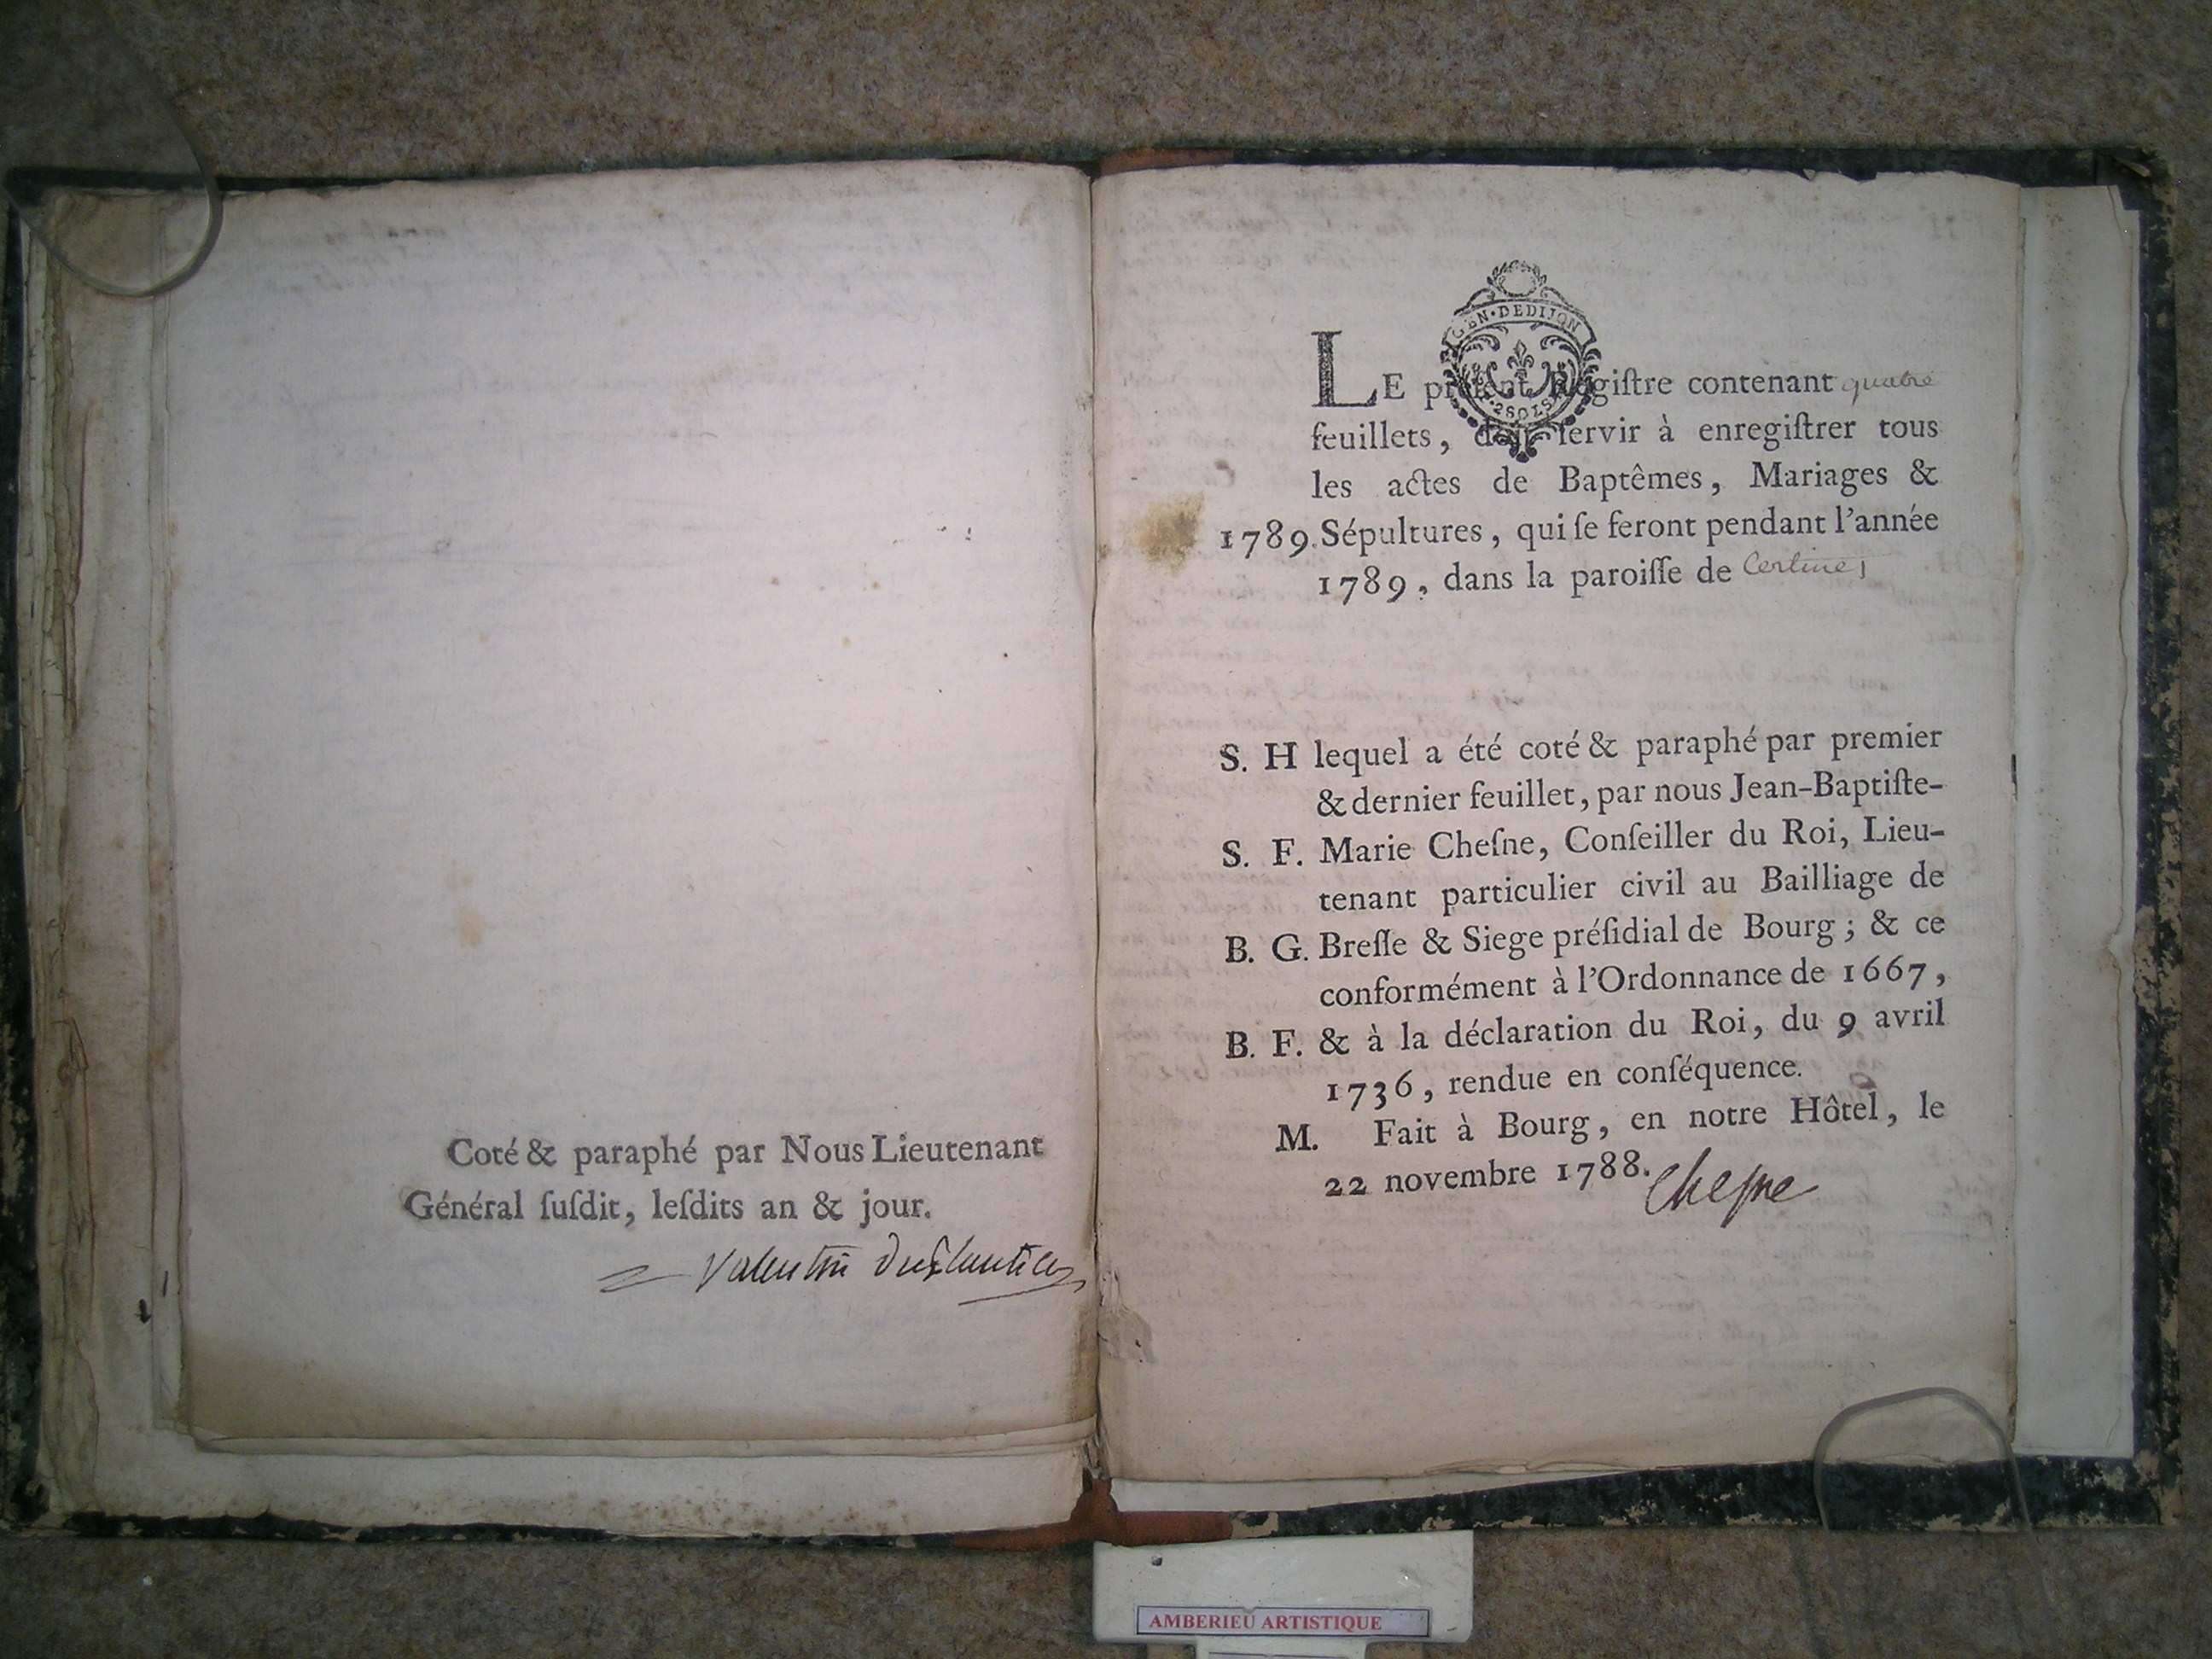 Coté & paraphé par Nous Lieutenant
Général ſuſdit, leſdits an & jour.
Valentin
GEN·DEDIJON
LE préſent Regiſtre contenant quatre
feuillets, doit ſervir à enregiſtrer tous
les actes de Baptêmes, Mariages &
1789. Sépultures, qui ſe feront pendant l'année
1789, dans la paroiſſe de Certines
S. H lequel a été coté & paraphé par premier
& dernier feuillet, par nous Jean-Baptiſte-
S. F. Marie Cheſne, Conſeiller du Roi, Lieu-
tenant particulier civil au Bailliage de
B. G. Breſſe & Siege préſidial de Bourg ; & ce
conformément à l'Ordonnance de 1667,
B. F. & à la déclaration du Roi, du 9 avril
1736, rendue en conſéquence.
M. Fait à Bourg, en notre Hôtel, le
22 novembre 1788. Cheſne
AMBERIEU ARTISTIQUE